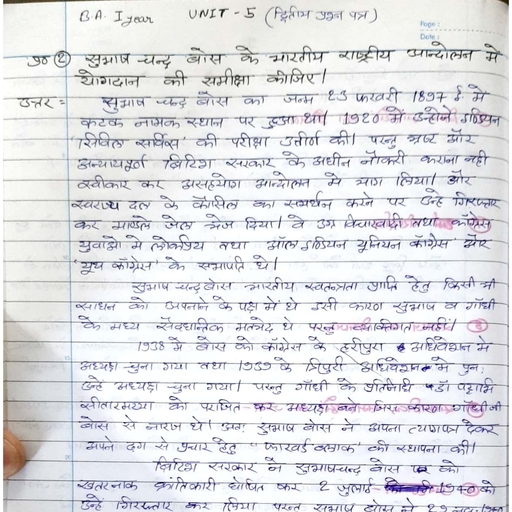 B.A. I year UNIT - 5 (द्वितीय प्रश्न पत्र)
Page :
Date :
प्र० (2) सुभाष चन्द्र बोस के भारतीय राष्ट्रीय आन्दोलन में
योगदान की समीक्षा कीजिए।
उत्तर = सुभाष चन्द्र बोस का जन्म 23 फरवरी 1897 ई. में
कटक नामक स्थान पर हुआ था। 1920 में उन्होंने इंडियन
'सिविल सर्विस' की परीक्षा उत्तीर्ण की। परन्तु भ्रष्ट और
अन्यायपूर्ण ब्रिटिश सरकार के अधीन नौकरी करना नहीं
स्वीकार कर असहयोग आन्दोलन में भाग लिया। और
स्वराज्य दल के कौंसिल का समर्थन करने पर उन्हें गिरफ्तार
कर माण्डले जेल भेज दिया। वे उग्र विचारवादी तथा कांग्रेस
युवाओं में लोकप्रिय तथा ऑल इण्डियन यूनियन कांग्रेस और
'यूथ कांग्रेस' के सभापति थे।
सुभाष चन्द्र बोस भारतीय स्वतन्त्रता प्राप्ति हेतु किसी भी
साधन को अपनाने के पक्ष में थे इसी कारण सुभाष व गाँधी
के मध्य सैद्धान्तिक मतभेद थे परन्तु व्यक्तिगत नहीं।
1938 में बोस को कांग्रेस के हरीपुरा अधिवेशन में
अध्यक्ष चुना गया तथा 1939 के त्रिपुरी अधिवेशन में पुनः
उन्हें अध्यक्ष चुना गया। परन्तु गाँधी के प्रतिनिधि डॉ पट्टाभि
सीतारमय्या को पराजित कर अध्यक्ष बने जिस कारण गाँधी जी
बोस से नाराज थे। अतः सुभाष बोस ने अपना त्यागपत्र देकर
अपने ढंग से प्रचार हेतु "फारवर्ड ब्लाक" की स्थापना की।
ब्रिटिश सरकार ने सुभाषचन्द्र बोस को
खतरनाक क्रांतिकारी घोषित कर 2 जुलाई 1940 को
उन्हें गिरफ्तार कर लिया परन्तु सुभाष बोस ने 29